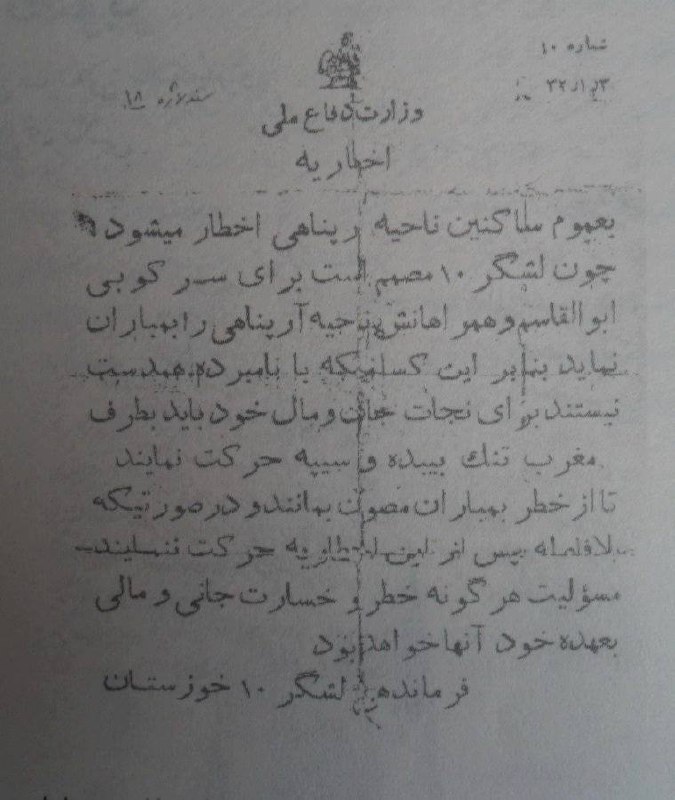 شماره ۱۰
وزارت دفاع ملی
اخطاریه
بعموم ساکنین ناحیه رپناهی اخطار میشود
چون لشگر ۱۰ مصمم است برای سر کوبی
ابوالقاسم و همراهانش ناحیه آرپناهی را بمباران
نماید بنابر این کسانیکه با نامبرده همدست
نیستند برای نجات جان و مال خود باید بطرف
مغرب تنك بیبده و سیپه حرکت نمایند
تا از خطر بمباران مصون بمانند و در صورتیکه
بلافاصله پس از این اخطاریه حرکت ننمایند
مسؤلیت هر گونه خطر و خسارت جانی و مالی
بعهده خود آنها خواهد بود
فرمانده لشگر ۱۰ خوزستان